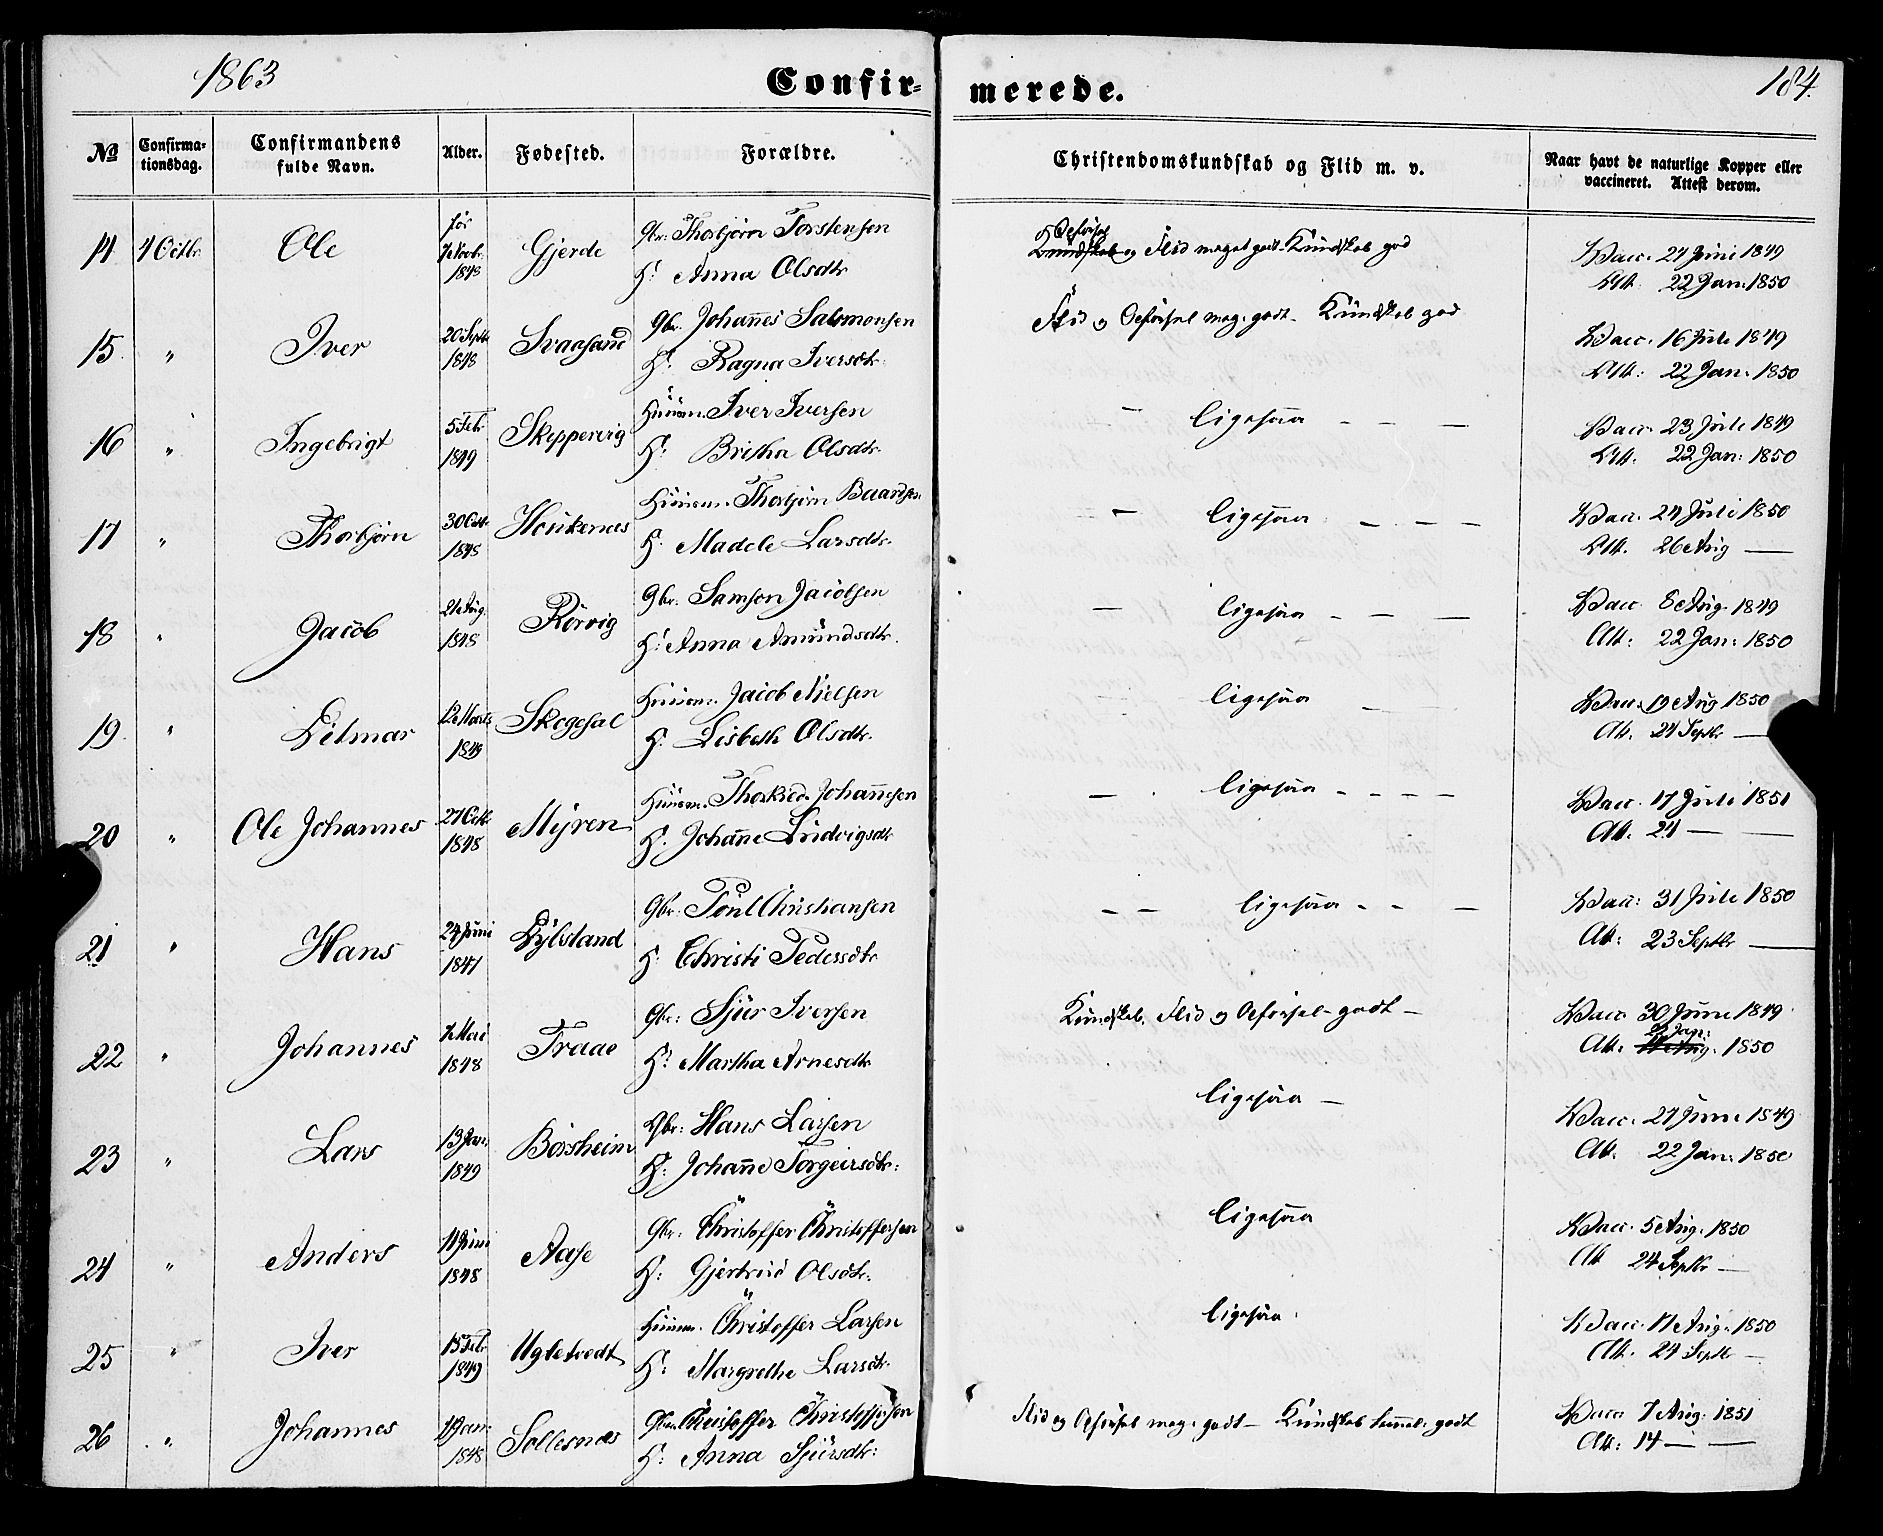 1863
Confir-
merede.
184.
No
Confirma-
tionsdag.
Confirmandens
fulde Navn.
Alder.
Fødested.
Forældre.
Christendomskundskab og Flid m. v.
Naar havt de naturlige Kopper eller
vaccineret. Attest derom.
14 4 Octbr. Ole
1848
Gjerde
Gbr: Thorbjørn Torstensen
H: Anna Olsdtr
Opførsel
Kundskab og Flid meget godt. Kundskab god
Vacc. 27 Juni 1849
Att: 22 Jan: 1850
15. " Iver
20 Septbr
1848
Svaasand
Gbr. Johannes Salomonsen
H: Ragna Iversdtr.
Flid og Opførsel meg. godt - Kundskab god
Vacc. 16 Juli 1849
Att: 22 Jan: 1850
16 " Ingebrigt
5 Febr
1849
Skeppervig
Huusm. Iver Iversen
H: Britha Olsdtr.
— ligesaa - - —
Vacc. 23 Juli 1849
Att. 22 Jan: 1850
17 " Thorbjørn
30 Octbr
1848
Houkenæs
Huusm. Thorbjørn Baardsen
H: Madele Larsdtr.
- — ligesaa - - - -
Vacc. 24 Juli 1850
Att. 26 Aug —
18 " Jacob
21 Aug.
1848
Rörvig
Gbr: Samson Jacobsen
H: Anna Amundsdtr.
— ligesaa - - —
Vacc 8 Aug. 1849
Att: 22 Jan: 1850
19. " Ditmar
12 Marts
1849
Skogesal
Huusm. Jacob Nielsen
H. Lisbeth Olsdtr.
ligesaa
Vacc. 19 Aug 1850
Att. 24 Septbr —
20 " Ole Johannes
27 Octbr
1848
Myren
Huusm. Johannesen
H. Johanne Ludvigsdtr
— . ligesaa - - - -
Vacc. 17 Juli 1851
Att. 24 — —
21 " Hans
24 Juni
1847
Gbr: Poul Christiansen
H: Christi Pedersdtr
- - ligesaa - - —
Vacc: 31 Juli 1850
Att: 23 Septbr —
22 " Johannes
1848
Traae
Gbr: Sjur Iversen
H: Martha Arnesdtr
Kundskab, Flid og Opførsel godt —
Vacc 30 Juni 1849
22 Jan:
Att: 1850
23 " Lars
13 Jan:
1849
Börsheim
Gbr: Hans Larsen
H: Johanne Torgeirsdtr:
ligesaa —
Vacc. 27 Juni 1849
Att: 22 Jan: 1850
24 " Anders
11 Juni
1848
Aase
Gbr: Christoffer Christoffersen
H: Gjertrud Olsdtr.
ligesaa
Vacc. 5 Aug. 1850
Att 24 Septbr —
25 " Iver
15 Febr
1849
Ugletvedt
Huusm. Christoffer Larsen
H: Margrethe Larsdtr.
ligesaa.
Vacc. 17 Aug. 1850
Att. 24 Septbr —
26 . " Johannes
1848
Sollesnæs
Gbr: Christoffer Christoffersen
H: Anna Sjursdtr:
Flid og Opførsel meg. godt — Kundskab temmel: godt
Vacc 7 Aug: 1851
Att: 14 — —